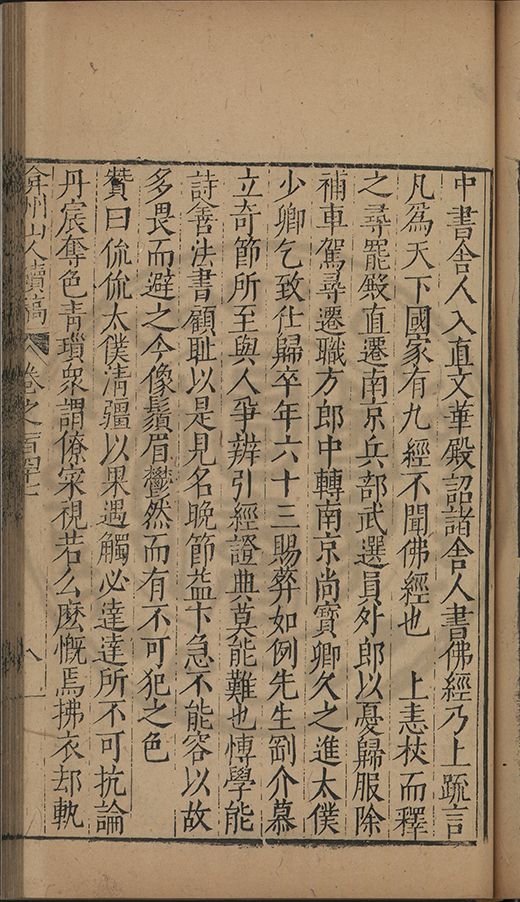 中書舍人入直文華殿詔諸舍人書佛經乃上䟽言
凡爲天下國家有九經不聞佛經也　上恚杖而釋
之尋罷殿直遷南京兵部武選員外郎以憂歸服除
補車駕尋遷職方郎中轉南京尚寳卿久之進太僕
少卿乞致仕歸卒年六十三賜葬如例先生劉介慕
立奇節所至與人爭辨引經證典莫能難也慱學能
詩善法書顧耻以是見名晚節葢卞急不能容以故
多畏而避之今像鬚眉鬱然而有不可犯之色
贊曰侃侃太僕清彊以果遇觸必達達所不可抗論
丹宸奪色青瑣衆謂僚寀視若么麽慨焉拂衣却軌
弇州山人續稿　卷之一百四十七　八